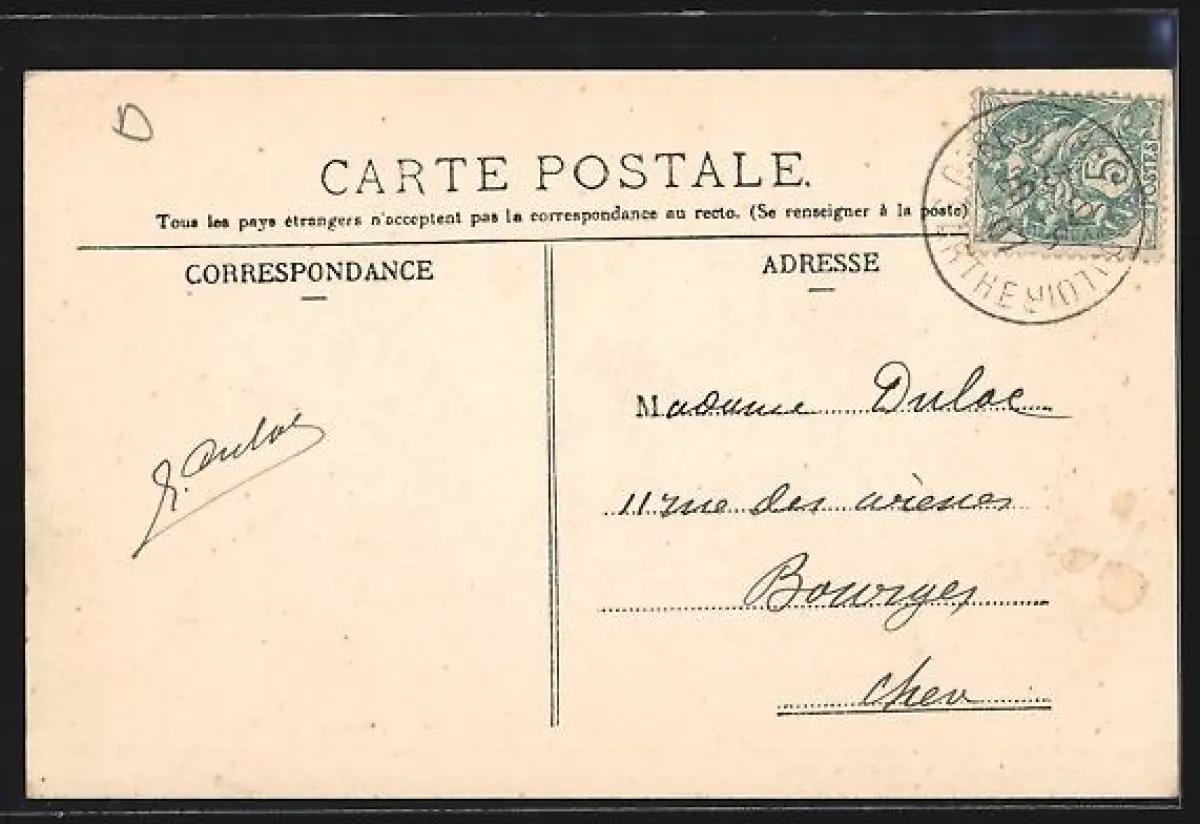 D
CARTE POSTALE.
Tous les pays étrangers n'acceptent pas la correspondance au recto. (Se renseigner à la poste)
5
POSTES
CORRESPONDANCE
ADRESSE
Madame Dulac
11 rue des arènes
Bourges
Cher
Dulac